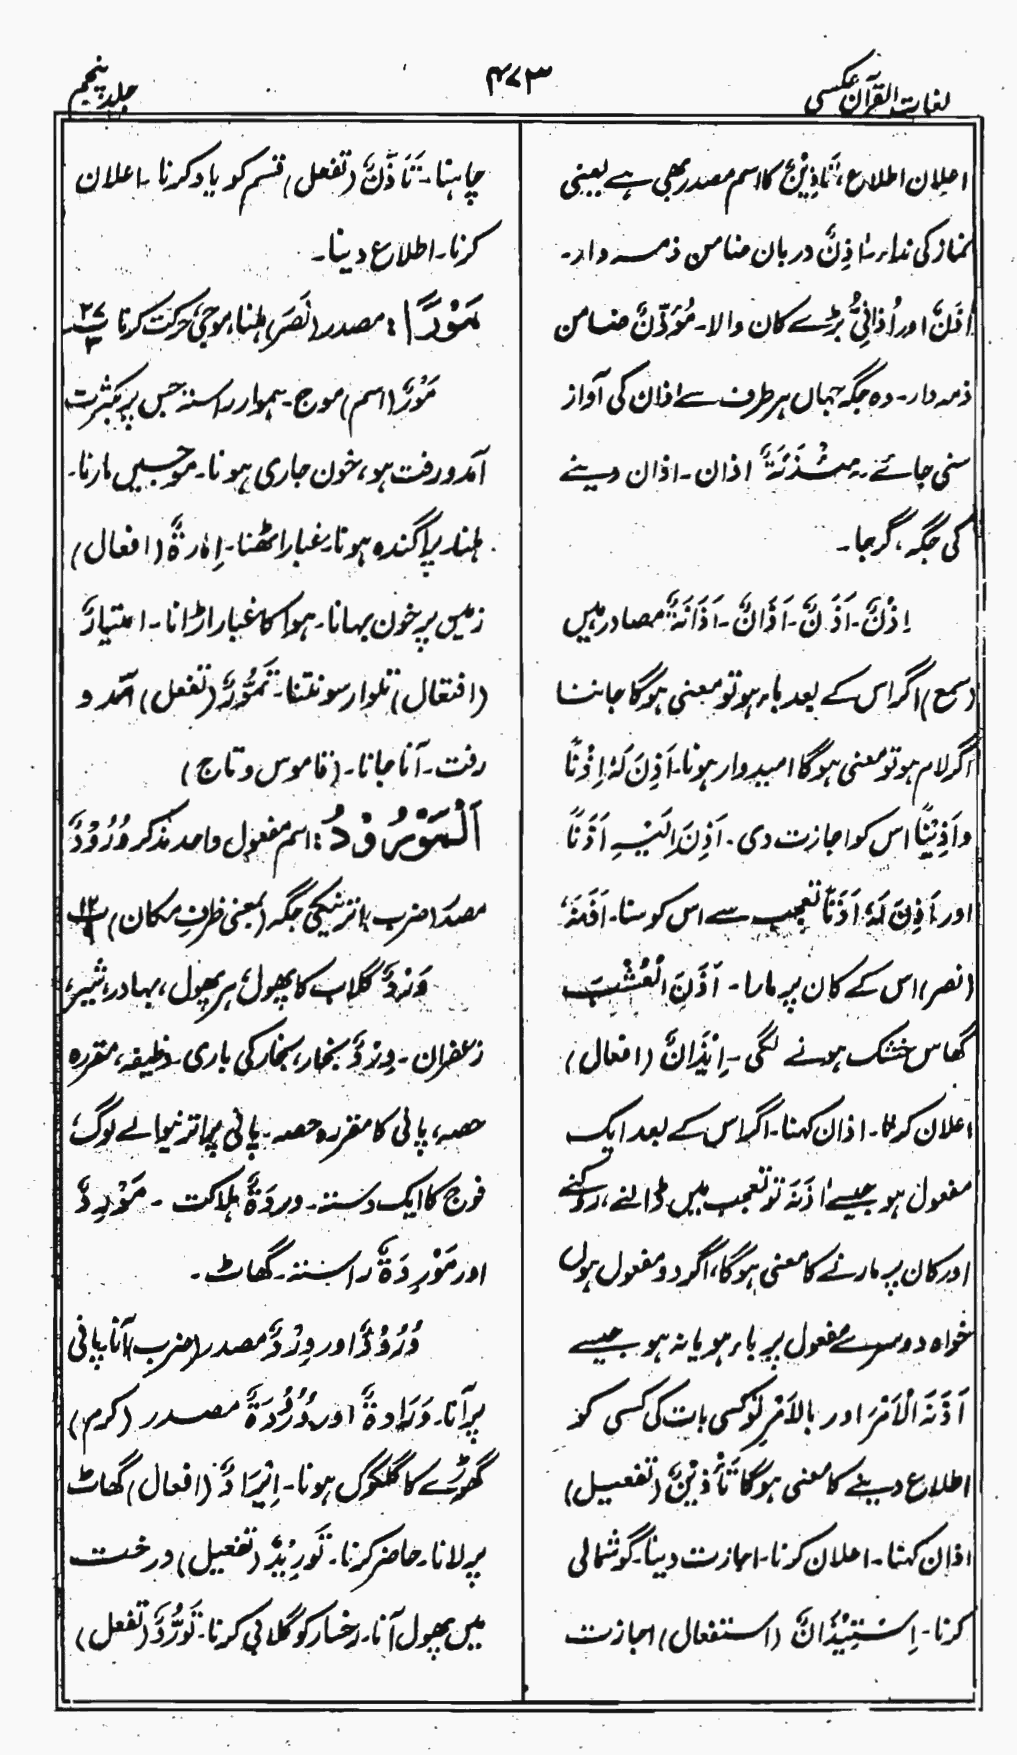 لغات القرآن عکسی
۴۷۳
جلد پنجم
اعلان اطلاع، تَاذِیْنٌ کا اسم مصدر بھی ہے یعنی
نماز کی نداء۔ اٰذِنٌ دربان ضامن ذمہ دار۔
اٰذَنٌ اور اُذَانِیٌّ بڑے کان والا۔ مُؤَذِّنٌ ضامن
ذمہ دار۔ وہ جگہ جہاں ہر طرف سے اذان کی آواز
سنی جائے۔ مِئْذَنَۃٌ اذان۔ اذان دینے
کی جگہ، گرجا۔
اِذْنٌ۔ اَذَنٌ۔ اَذَانٌ۔ اَذَانَۃٌ مصادر ہیں
(سمع) اگر اس کے بعد باء ہو تو معنی ہوگا جاننا
اگر لام ہو تو معنی ہوگا امیدوار ہونا۔ اَذِنَ لَہٗ اِذْنًا
و اَذِیْنًا اس کو اجازت دی۔ اَذِنَ اِلَیْہِ اَذَنًا
اور اَذِنَ لَہٗ اَذَنًا تعجب سے اس کو سنا۔ اَذَنَہٗ
(نصر) اس کے کان پر مارا۔ اَذَّنَ الْعُشْبَ
گھاس خشک ہونے لگی۔ اِیْذَانٌ (افعال)
اعلان کرنا۔ اذان کہنا۔ اگر اس کے بعد ایک
مفعول ہو جیسے اٰذَنَہٗ تو تعجب میں ڈالنے، روکنے
اور کان پر مارنے کا معنی ہوگا، اگر دو مفعول ہوں
خواہ دوسرے مفعول پر باء ہو یا نہ ہو جیسے
اٰذَنَہُ الْاَمْرَ اور بِالْاَمْرِ تو کسی بات کی کسی کو
اطلاع دینے کا معنی ہوگا تَأْذِیْنٌ (تفعیل)
اذان کہنا۔ اعلان کرنا۔ اجازت دینا۔ گوشمالی
کرنا۔ اِسْتِیْذَانٌ (استفعال) اجازت
چاہنا۔ تَاَذُّنٌ (تفعل) قسم کو یاد کرنا۔ اعلان
کرنا۔ اطلاع دینا۔
مَوْرًا: مصدر (نَصَرَ) ہلنا، موجی حرکت کرنا پ ۲۷ ۳
مَوْرٌ (اسم) موج۔ ہموار راستہ جس پر بکثرت
آمد و رفت ہو، خون جاری ہونا۔ موجیں مارنا۔
ہلنا۔ پراگندہ ہونا۔ غبار اٹھنا۔ اِمَارَۃٌ (افعال)
زمین پر خون بہانا۔ ہوا کا غبار اڑانا۔ امتیارٌ
(افتعال) تلوار سونتنا۔ تَمَوُّرٌ (تفعل) آمد و
رفت۔ آنا جانا۔ (قاموس و تاج)
اَلْمَوْرُوْدُ: اسم مفعول واحد مذکر وُرُوْدٌ
مصدر (ضرب) اترنیکی جگہ (بمعنی ظرفِ مکان) پ ۱۲ ۹
وَرْدٌ گلاب کا پھول، ہر پھول، بہادر، شیر،
زعفران۔ وِرْدٌ بخار، بخار کی باری۔ وظیفہ، مقررہ
حصہ، پانی کا مقررہ حصہ۔ پانی پر اترنیوالے لوگ،
فوج کا ایک دستہ۔ وردَۃٌ ہلاکت ۔ مَوْرِدٌ
اور مَوْرِدَۃٌ راستہ۔ گھاٹ۔
وُرُوْدٌ اور وِرْدٌ مصدر (ضرب) آنا پانی
پر آنا۔ وَرَادۃٌ اور وُرُوْدَۃٌ مصدر (کرم)
گھوڑے کا گلگوں ہونا۔ اِیْرَادٌ (افعال) گھاٹ
پر لانا۔ حاضر کرنا۔ تَوْرِیْدٌ (تفعیل) درخت
میں پھول آنا۔ رخسار کو گلابی کرنا۔ تَوَرُّدٌ (تفعل)